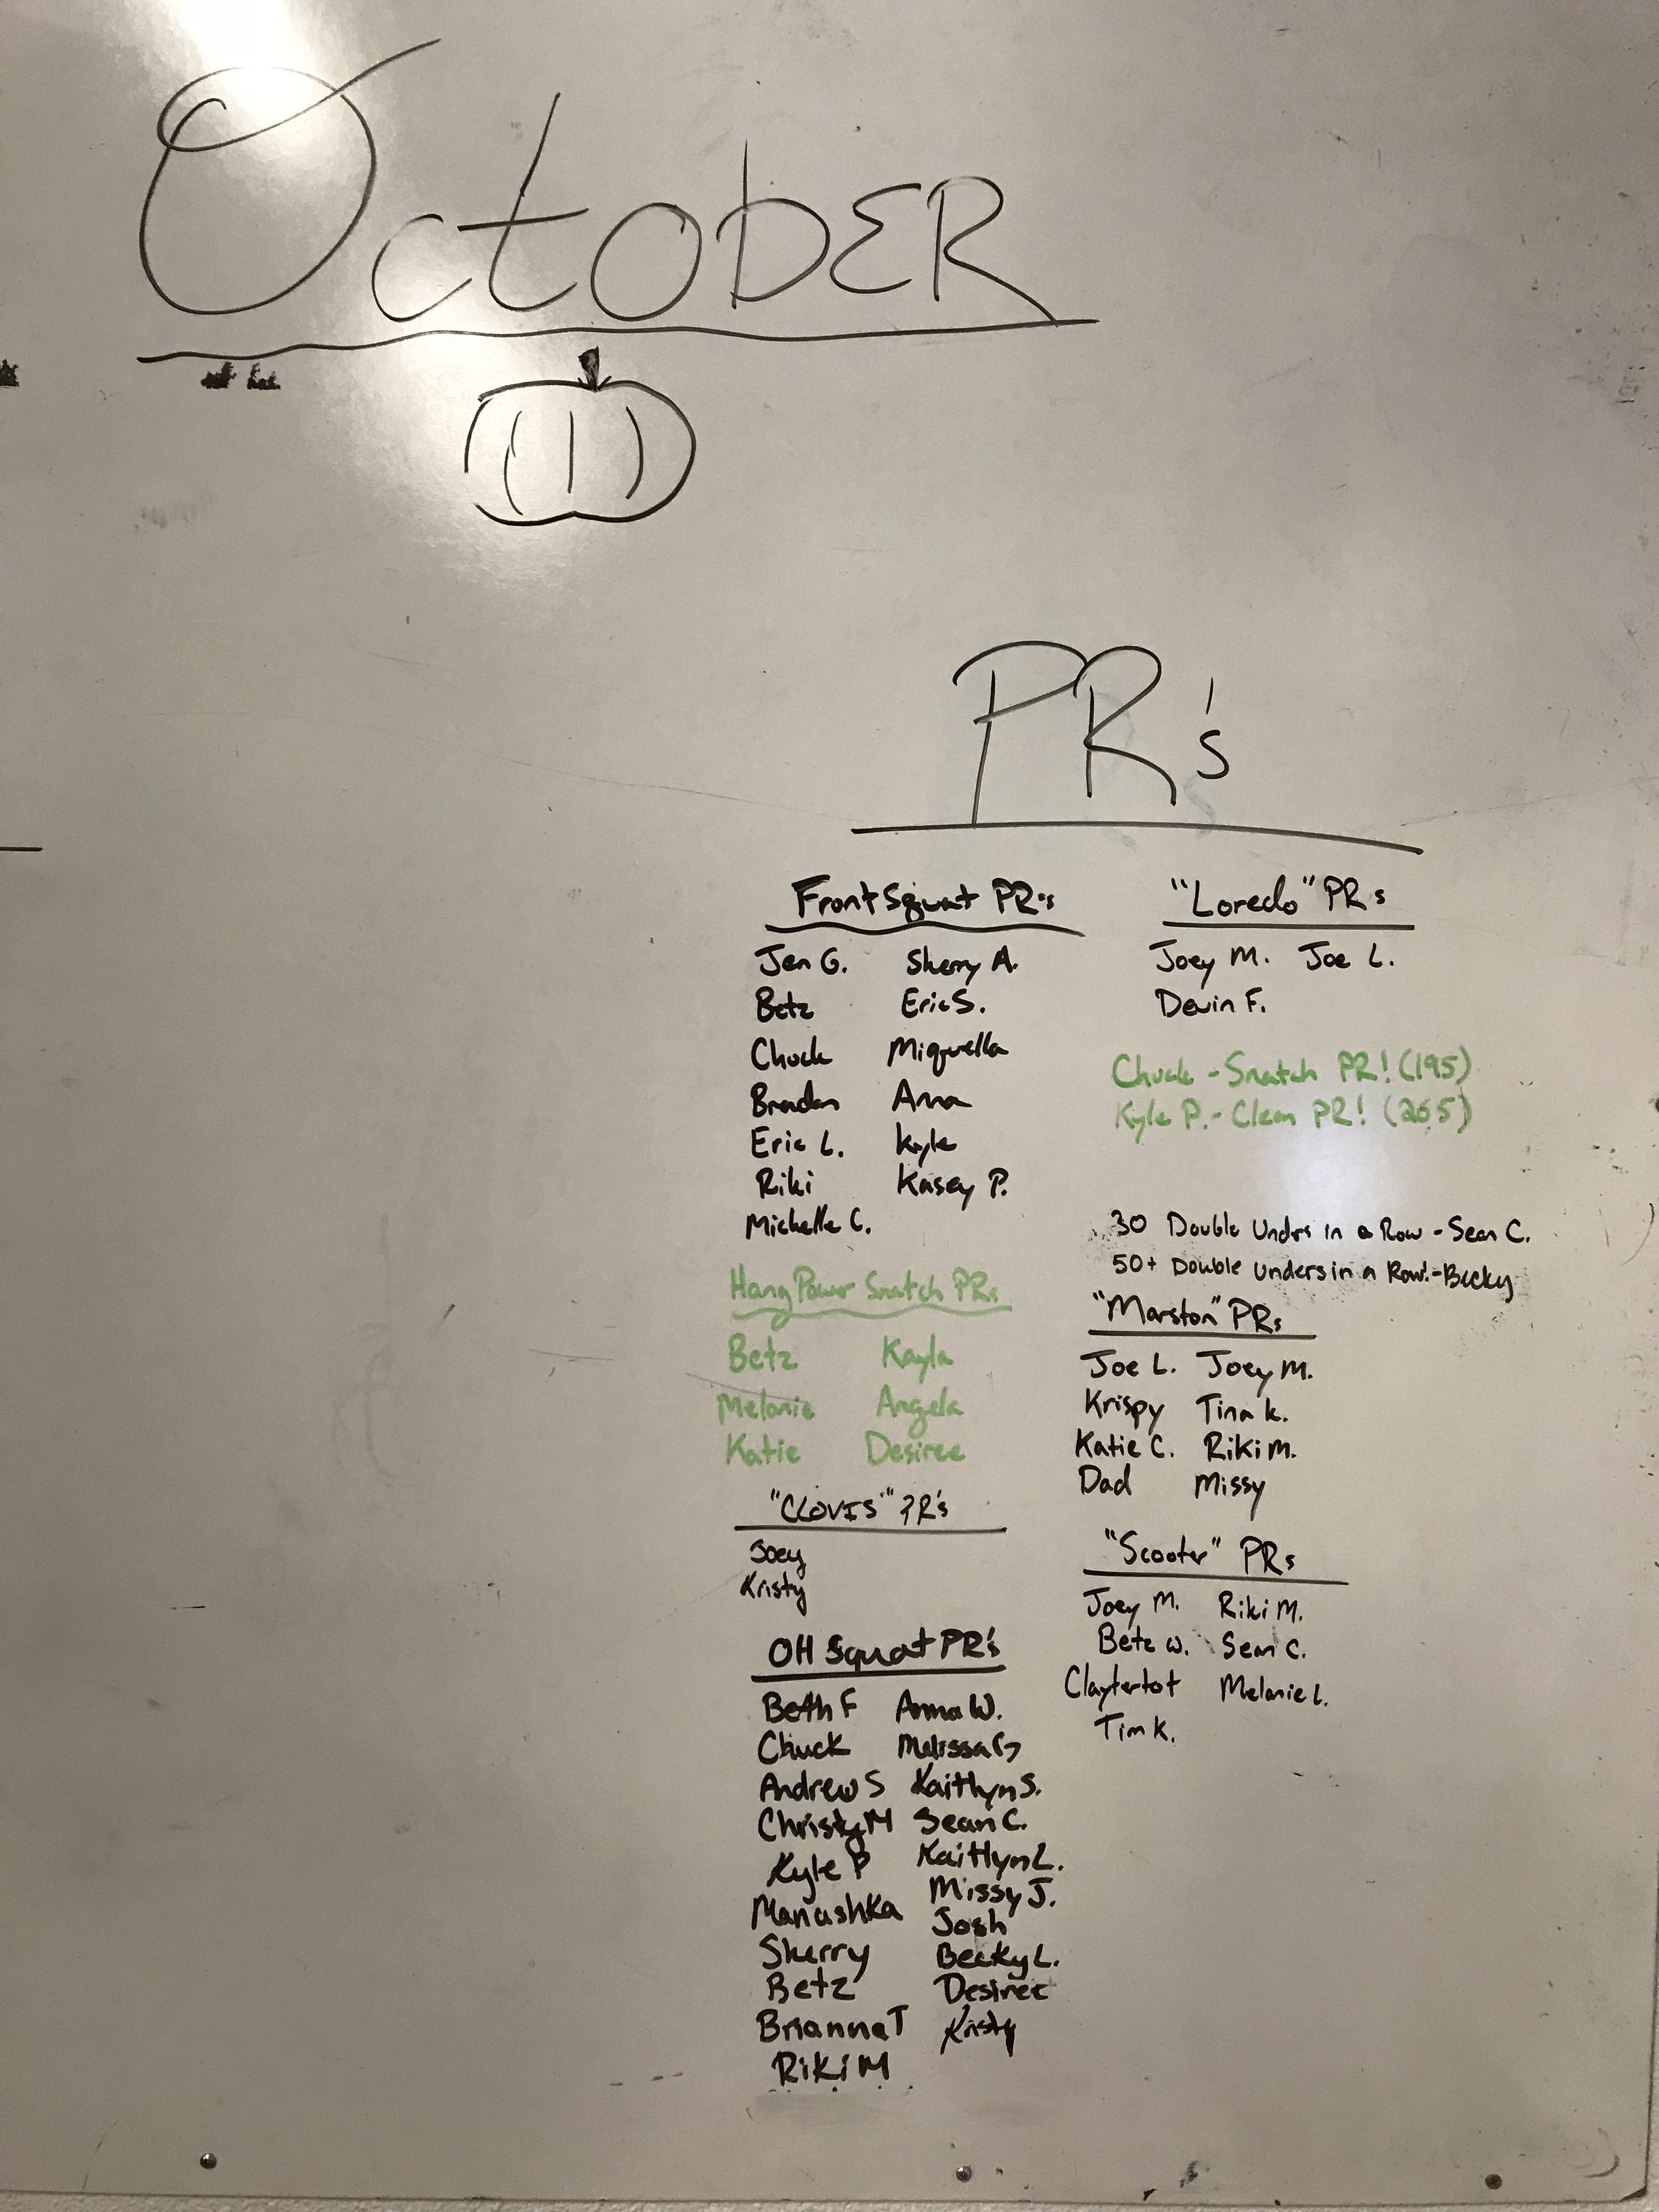 October
PR's
Front Squat PR's
Jen G. Sherry A.
Betz Eric S.
Chuck Miquella
Braden Anna
Eric L. Kyle
Riki Kasey P.
Michelle C.
Hang Power Snatch PRs
Betz Kayla
Melanie Angela
Katie Desiree
"CLOVIS" PR's
Joey
Kristy
OH Squat PR's
Beth F Anna W.
Chuck Melissa G
Andrew S Kaitlyn S.
Christy M Sean C.
Kyle P Kaitlyn L.
Manushka Missy J.
Sherry Josh
Betz Becky L.
Brianna T Desiree
Riki M Kristy
"Loredo" PRs
Joey M. Joe L.
Devin F.
Chuck - Snatch PR! (195)
Kyle P. - Clean PR! (265)
30 Double Unders in a Row - Sean C.
50+ Double Unders in a Row! - Becky
"Marston" PRs
Joe L. Joey M.
Krispy Tina K.
Katie C. Riki M.
Dad Missy
"Scooter" PRs
Joey M. Riki M.
Betz W. Sean C.
Claytertot Melanie L.
Tim K.